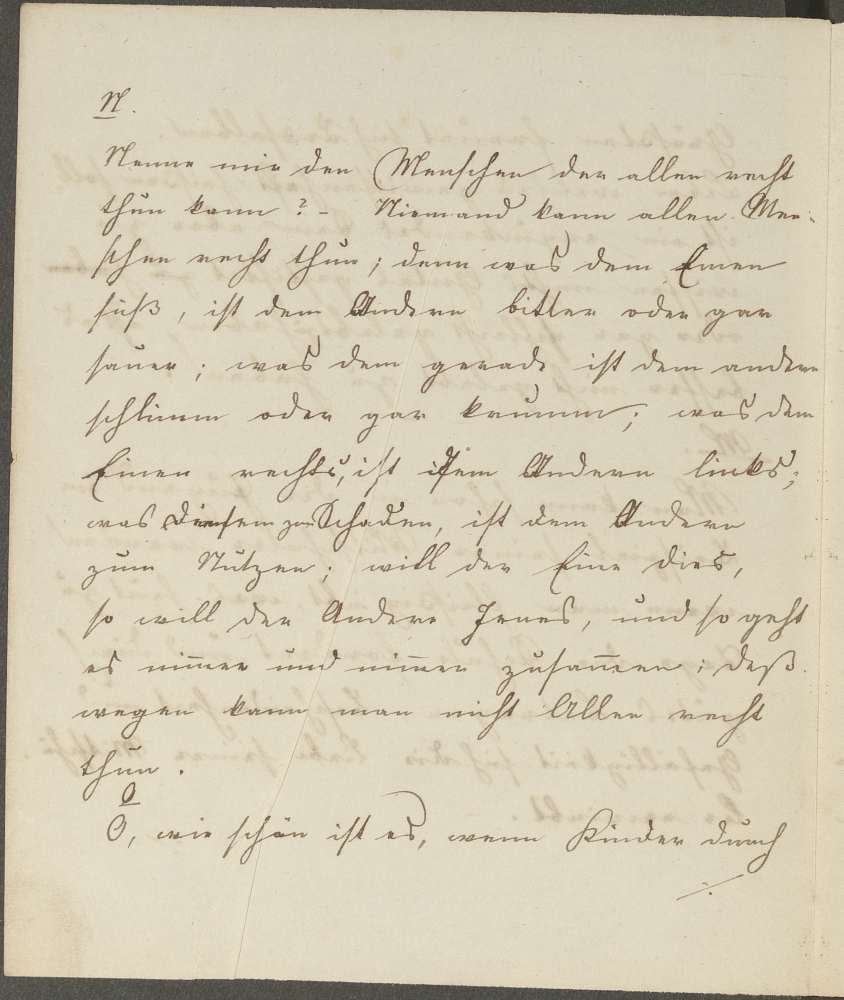 N.
Nenne mir den Menschen der allen recht
thun kann? – Niemand kann allen Men-
schen recht thun; denn was dem Einen
süß, ist dem Andern bitter oder gar
sauer; was dem gerade ist dem andern
schlimm oder gar krumm; was dem
Einen rechts, ist dem Andern links;
was diesem zum Schaden, ist dem Andern
zum Nutzen; will der Eine dies,
so will der Andere Jenes, und so geht
es nim̄er und nim̄er zusam̄en; deß-
wegen kann man nicht Allen recht
thun.
O
O, wie schön ist es, wenn Kinder durch
./.